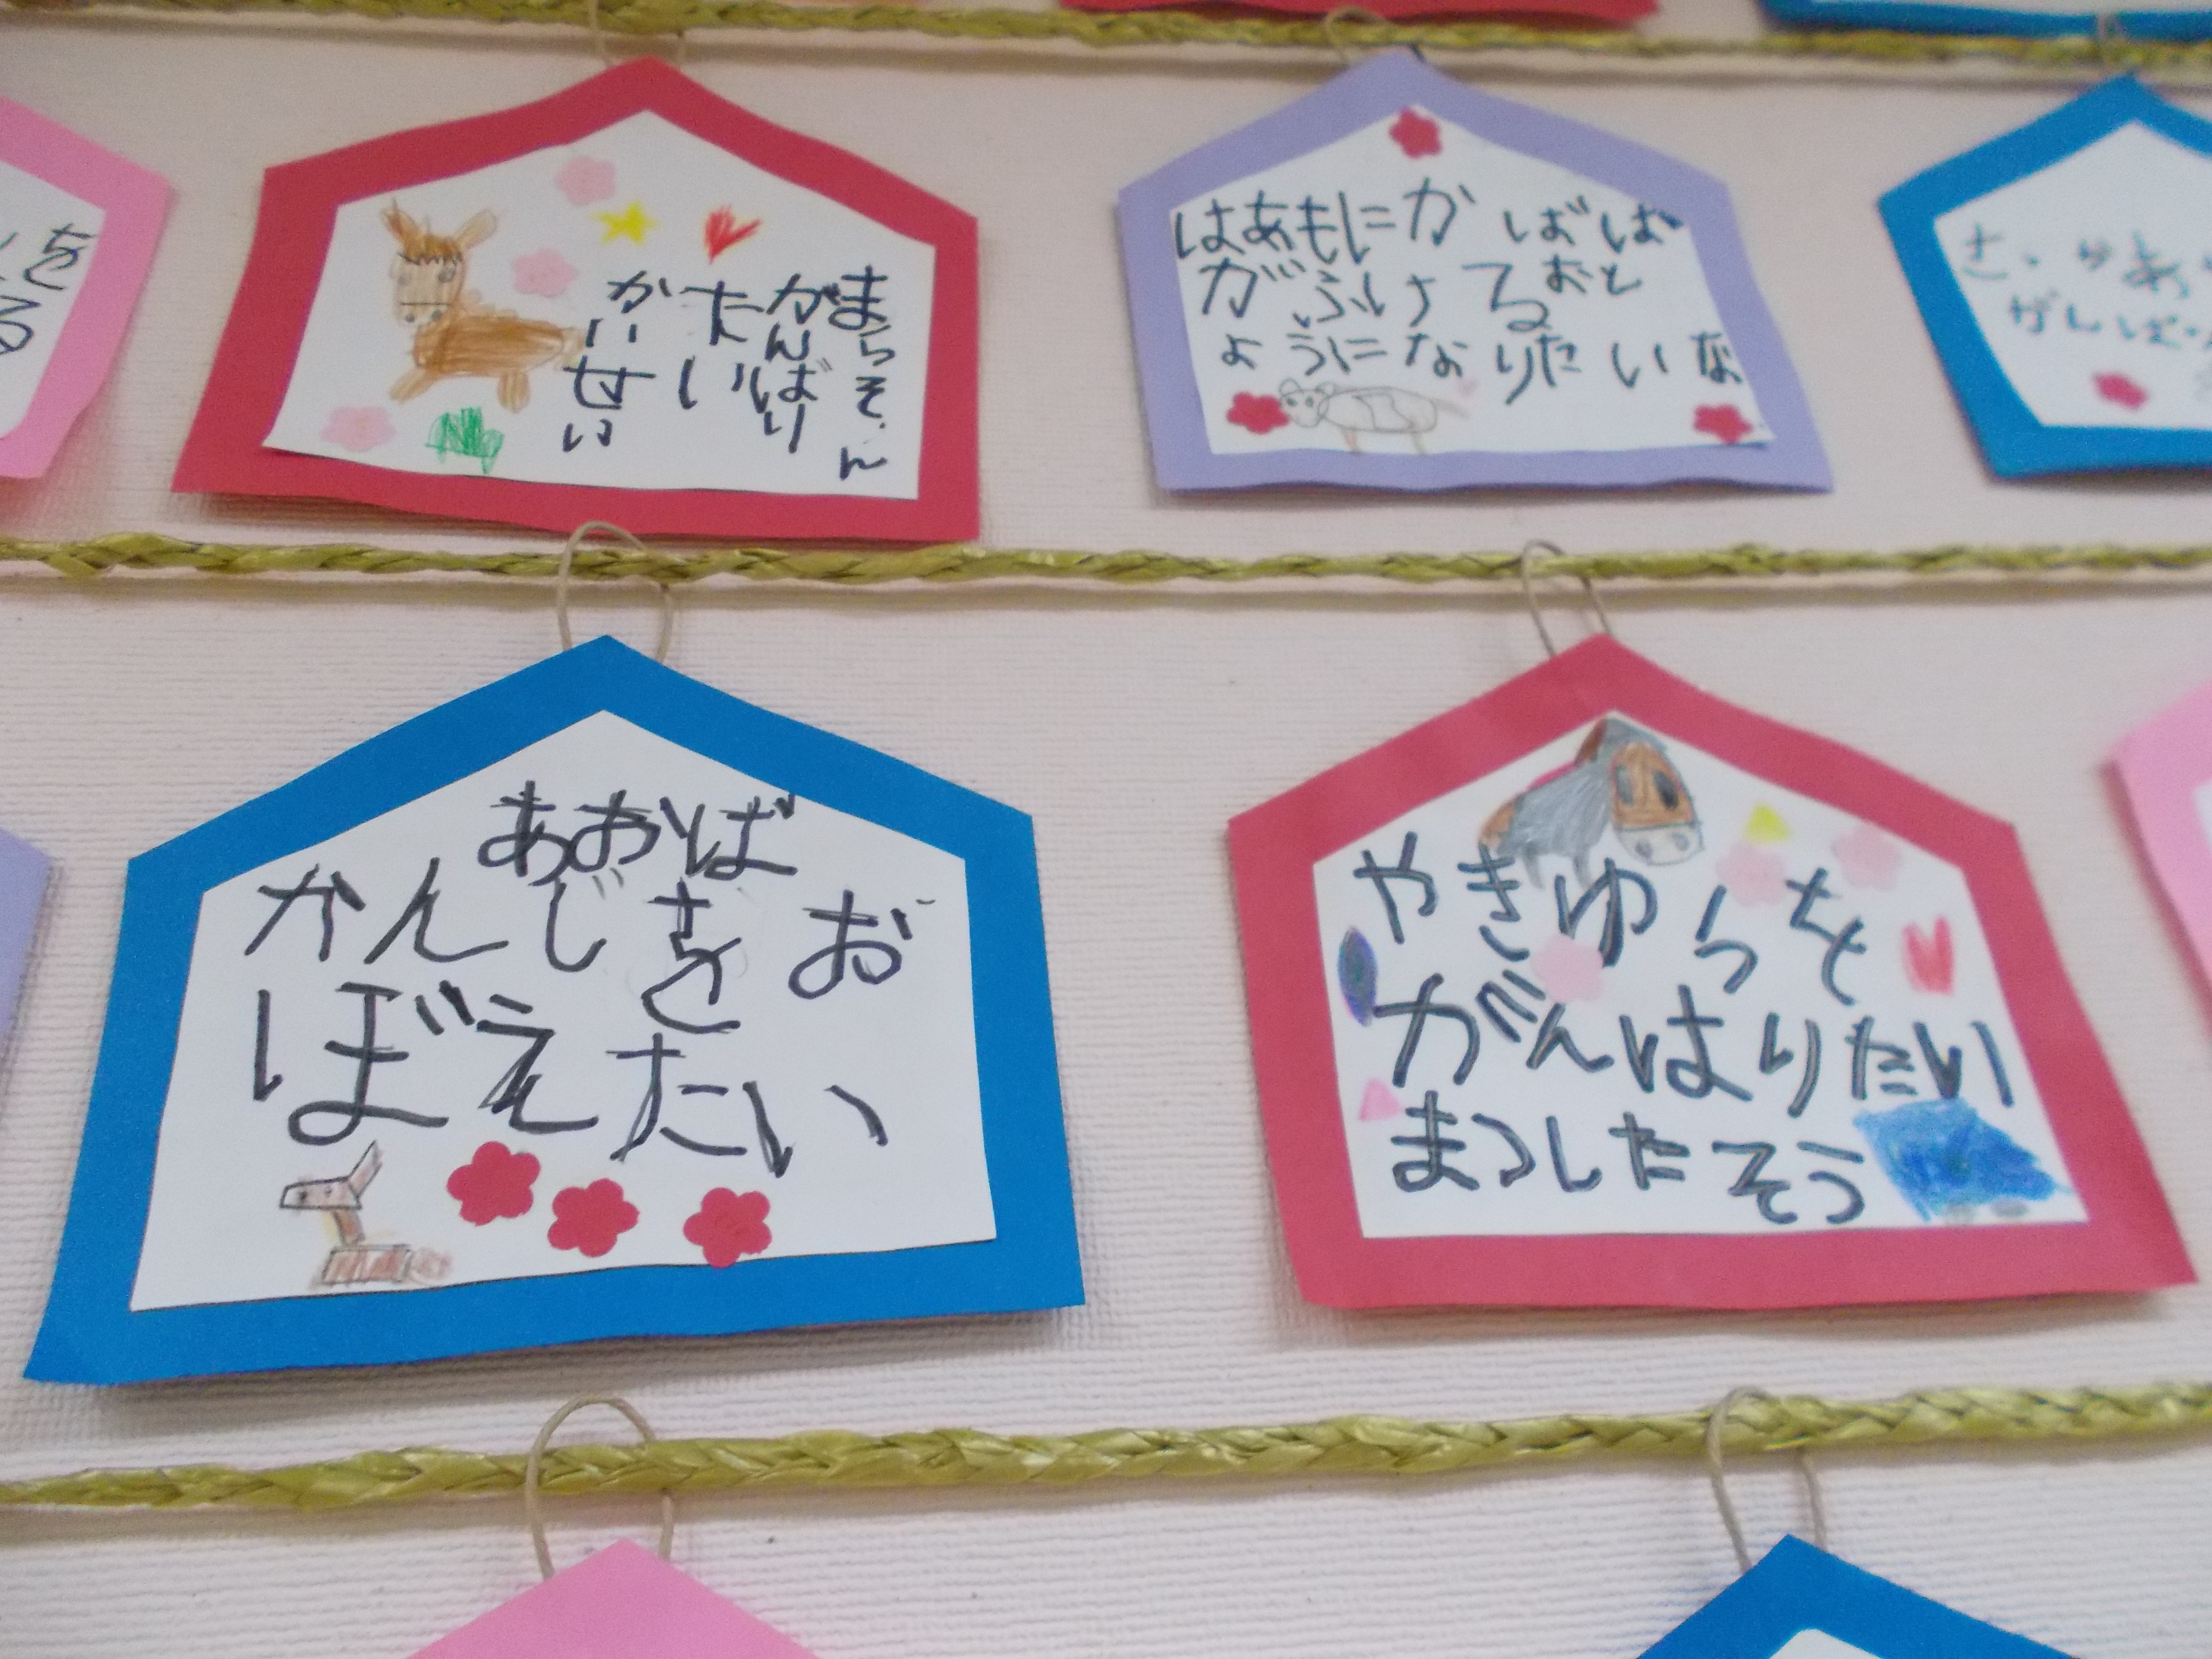 まらそん
がんばり
たい
かいせい
はあもにか
がふける
ようになりたいな
あおば
かんじをお
ぼえたい
やきゆうを
がんはりたい
まつしたそう